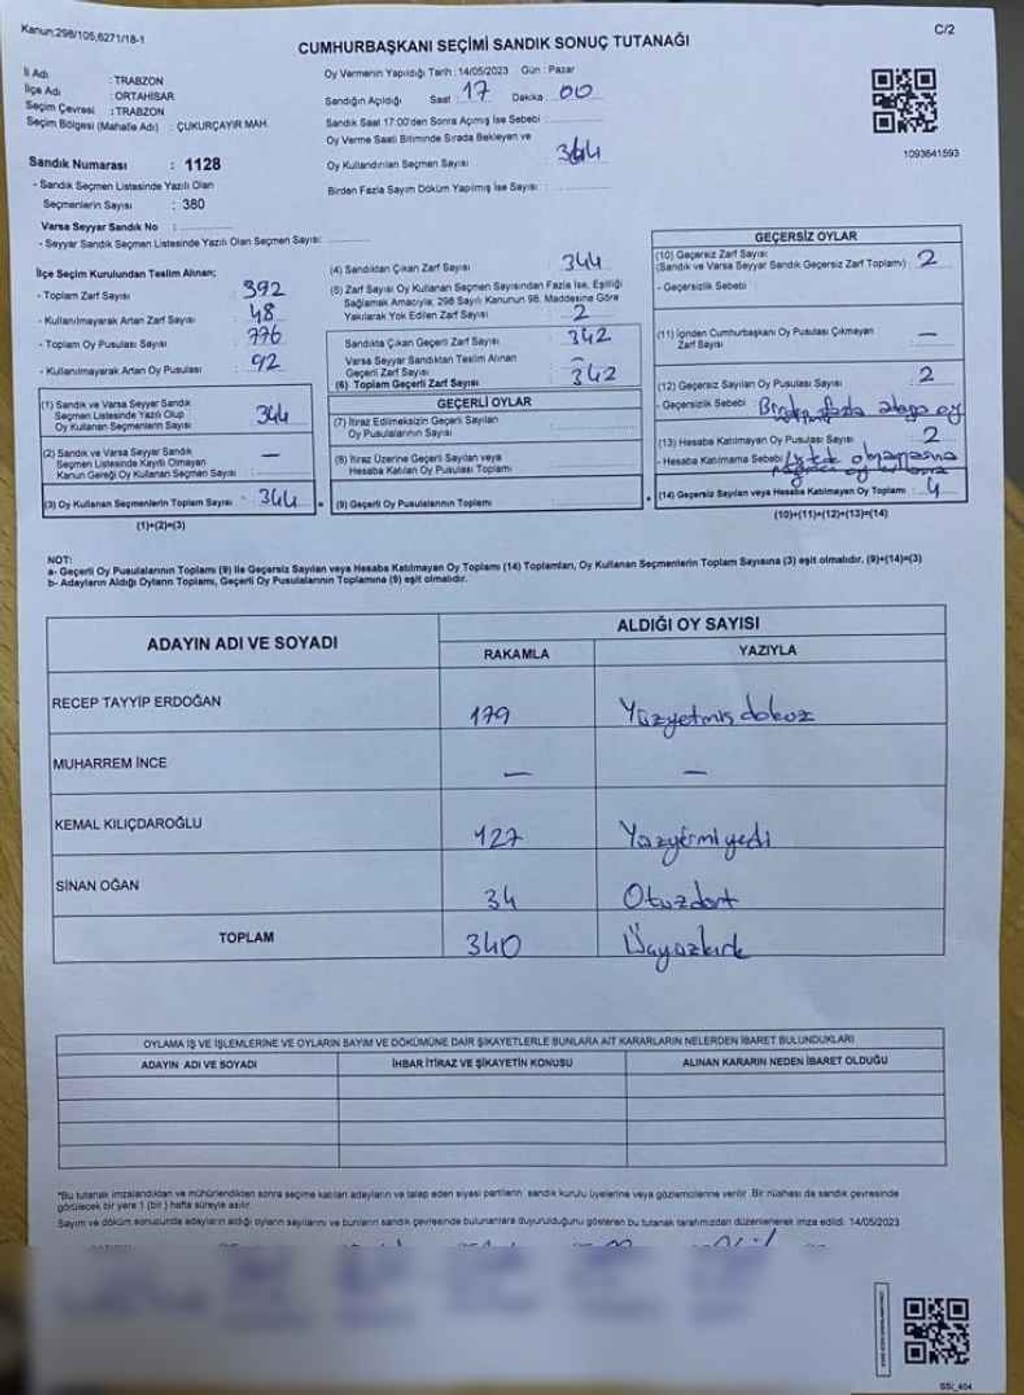 Kanun:298/105,6271/18-1
C/2
CUMHURBAŞKANI SEÇİMİ SANDIK SONUÇ TUTANAĞI
İl Adı : TRABZON
İlçe Adı : ORTAHİSAR
Seçim Çevresi : TRABZON
Seçim Bölgesi (Mahalle Adı) : ÇUKURÇAYIR MAH.
Sandık Numarası : 1128
- Sandık Seçmen Listesinde Yazılı Olan
Seçmenlerin Sayısı : 380
Varsa Seyyar Sandık No :
- Seyyar Sandık Seçmen Listesinde Yazılı Olan Seçmen Sayısı:
Oy Vermenin Yapıldığı Tarih : 14/05/2023 Gün : Pazar
Sandığın Açıldığı Saat : 17 Dakika : 00
Sandık Saat 17:00'den Sonra Açımış İse Sebebi :
Oy Verme Saati Bitiminde Sırada Bekleyen ve
Oy Kullandırılan Seçmen Sayısı : 344
Birden Fazla Sayım Döküm Yapılmış İse Sayısı :
1093641593
İlçe Seçim Kurulundan Teslim Alınan;
- Toplam Zarf Sayısı : 392
- Kullanılmayarak Artan Zarf Sayısı : 48
- Toplam Oy Pusulası Sayısı : 776
- Kullanılmayarak Artan Oy Pusulası : 92
(1) Sandık ve Varsa Seyyar Sandık
Seçmen Listesinde Yazılı Olup
Oy Kullanan Seçmenlerin Sayısı : 344
(2) Sandık ve Varsa Seyyar Sandık
Seçmen Listesinde Kayıtlı Olmayan
Kanun Gereği Oy Kullanan Seçmen Sayısı : —
(3) Oy Kullanan Seçmenlerin Toplam Sayısı : 344
(1)+(2)=(3)
(4) Sandıktan Çıkan Zarf Sayısı : 344
(5) Zarf Sayısı Oy Kullanan Seçmen Sayısından Fazla İse, Eşitliği
Sağlamak Amacıyla, 298 Sayılı Kanunun 98. Maddesine Göre
Yakılarak Yok Edilen Zarf Sayısı : 2
Sandıkta Çıkan Geçerli Zarf Sayısı : 342
Varsa Seyyar Sandıktan Teslim Alınan
Geçerli Zarf Sayısı : —
(6) Toplam Geçerli Zarf Sayısı : 342
GEÇERLİ OYLAR
(7) İtiraz Edilmeksizin Geçerli Sayılan
Oy Pusulalarının Sayısı :
(8) İtiraz Üzerine Geçerli Sayılan veya
Hesaba Katılan Oy Pusulası Toplamı :
(9) Geçerli Oy Pusulalarının Toplamı :
GEÇERSİZ OYLAR
(10) Geçersiz Zarf Sayısı
(Sandık ve Varsa Seyyar Sandık Geçersiz Zarf Toplamı) : 2
- Geçersizlik Sebebi :
(11) İçinden Cumhurbaşkanı Oy Pusulası Çıkmayan
Zarf Sayısı : —
(12) Geçersiz Sayılan Oy Pusulası Sayısı : 2
- Geçersizlik Sebebi : Birden fazla adaya oy
(13) Hesaba Katılmayan Oy Pusulası Sayısı : 2
- Hesaba Katılmama Sebebi :
(14) Geçersiz Sayılan veya Hesaba Katılmayan Oy Toplamı : 4
(10)+(11)+(12)+(13)=(14)
NOT:
a- Geçerli Oy Pusulalarının Toplamı (9) ile Geçersiz Sayılan veya Hesaba Katılmayan Oy Toplamı (14) Toplamları, Oy Kullanan Seçmenlerin Toplam Sayısına (3) eşit olmalıdır. (9)+(14)=(3)
b- Adayların Aldığı Oyların Toplamı, Geçerli Oy Pusulalarının Toplamına (9) eşit olmalıdır.
ADAYIN ADI VE SOYADI
ALDIĞI OY SAYISI
RAKAMLA YAZIYLA
RECEP TAYYİP ERDOĞAN 179 Yüzyetmiş dokuz
MUHARREM İNCE — —
KEMAL KILIÇDAROĞLU 127 Yüzyirmi yedi
SİNAN OĞAN 34 Otuzdört
TOPLAM 340 Üçyüzkırk
OYLAMA İŞ VE İŞLEMLERİNE VE OYLARIN SAYIM VE DÖKÜMÜNE DAİR ŞİKAYETLERLE BUNLARA AİT KARARLARIN NELERDEN İBARET BULUNDUKLARI
ADAYIN ADI VE SOYADI İHBAR İTİRAZ VE ŞİKAYETİN KONUSU ALINAN KARARIN NEDEN İBARET OLDUĞU
*Bu tutanak imzalandıktan ve mühürlendikten sonra seçime katılan adayların ve talep eden siyasi partilerin sandık kurulu üyelerine veya gözlemcilerine verilir. Bir nüshası da sandık çevresinde
görülecek bir yere 1 (bir) hafta süreyle asılır.
Sayım ve döküm sonucunda adayların aldığı oyların sayılarını ve bunların sandık çevresinde bulunanlara duyurulduğunu gösteren bu tutanak tarafımızdan düzenlenerek imza edildi. 14/05/2023